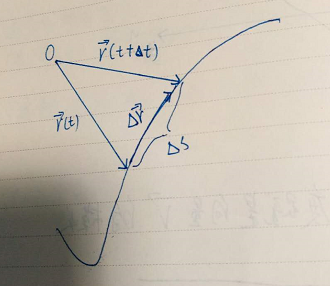 O
r⃗(t+Δt)
r⃗(t)
Δr⃗
ΔS